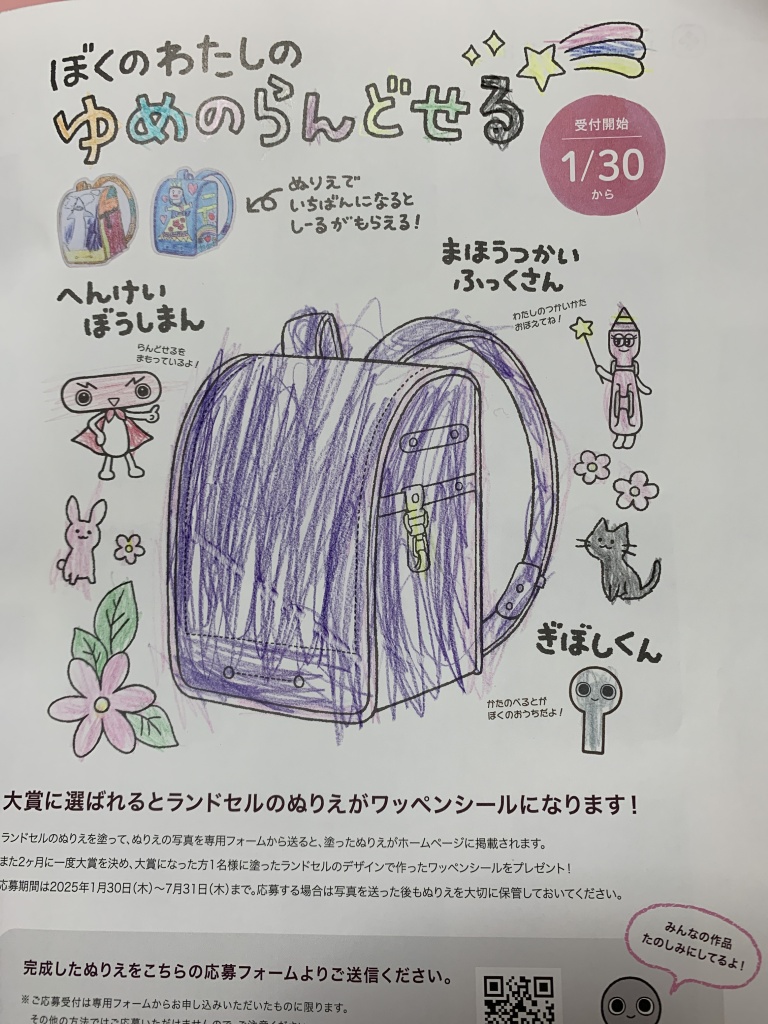 ぼくのわたしの
ゆめのらんどせる
受付開始
1/30
から
ぬりえで
いちばんになると
しーるがもらえる!
まほうつかい
ふっくさん
わたしのつかいかた
おぼえてね!
へんけい
ぼうしまん
らんどせるを
まもっているよ!
ぎぼしくん
かたのべるとが
ぼくのおうちだよ!
大賞に選ばれるとランドセルのぬりえがワッペンシールになります!
ランドセルのぬりえを塗って、ぬりえの写真を専用フォームから送ると、塗ったぬりえがホームページに掲載されます。
また2ヶ月に一度大賞を決め、大賞になった方1名様に塗ったランドセルのデザインで作ったワッペンシールをプレゼント!
応募期間は2025年1月30日(木)〜7月31日(木)まで。応募する場合は写真を送った後もぬりえを大切に保管しておいてください。
みんなの作品
たのしみにしてるよ!
完成したぬりえをこちらの応募フォームよりご送信ください。
※ご応募受付は専用フォームからお申し込みいただいたものに限ります。
その他の方法ではご応募いただけませんので、ご注意ください